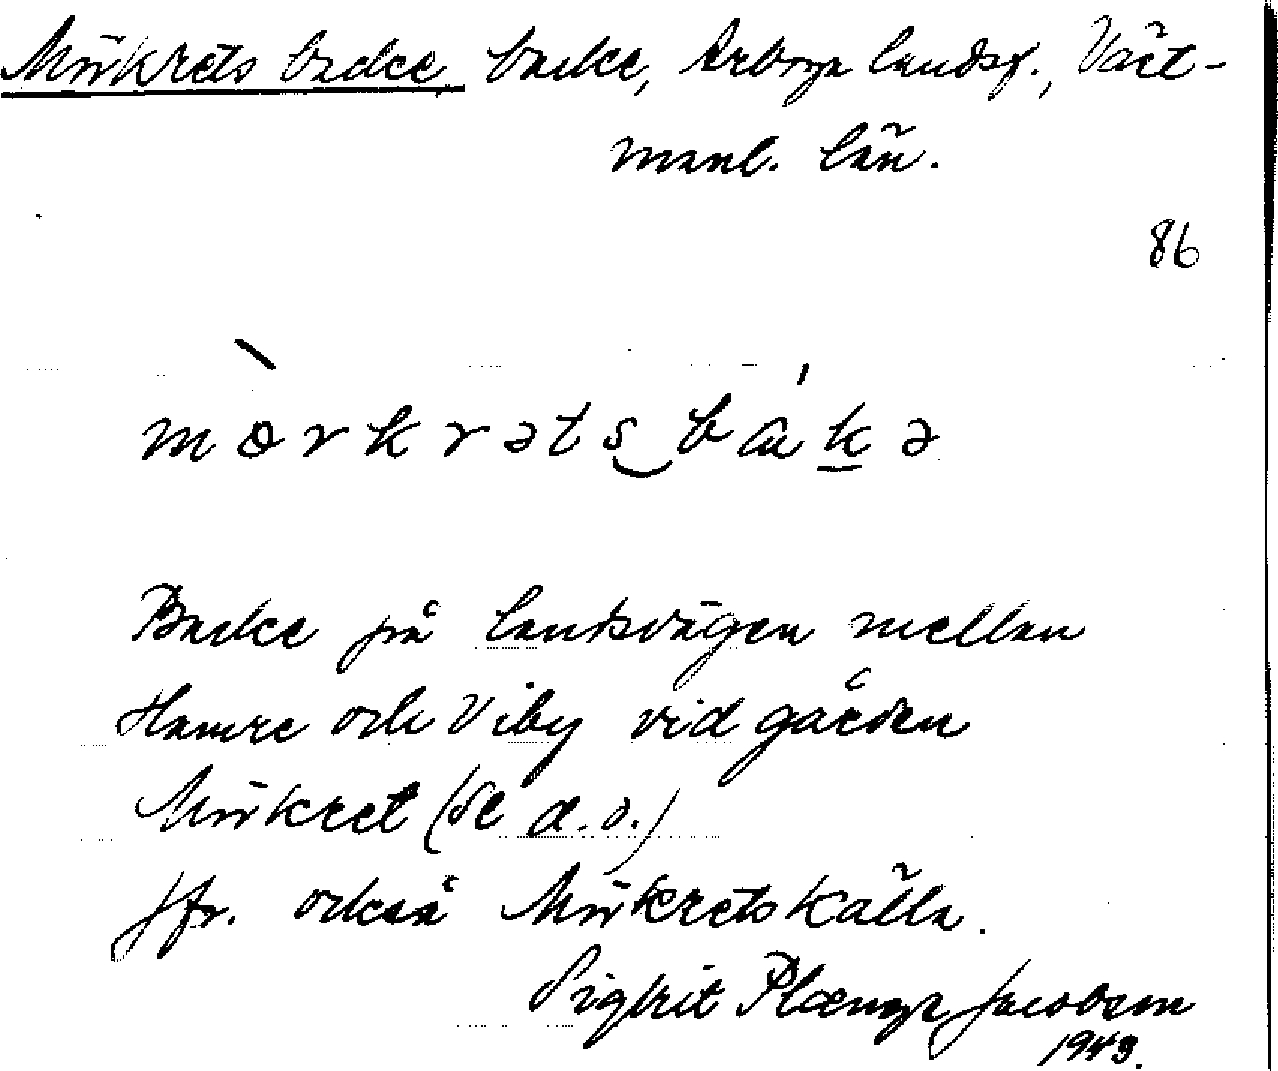 Mörkrets backe backe, Arboga landsf., Väst-
manl. län.
86
mörkrətsbakə
Backe på landsvägen mellan
Hamre och Viby vid gården
Mörkret (se d.o.)
Jfr. också Mörkretskälla.
Sigbrit Plænge Jacobson
1943.